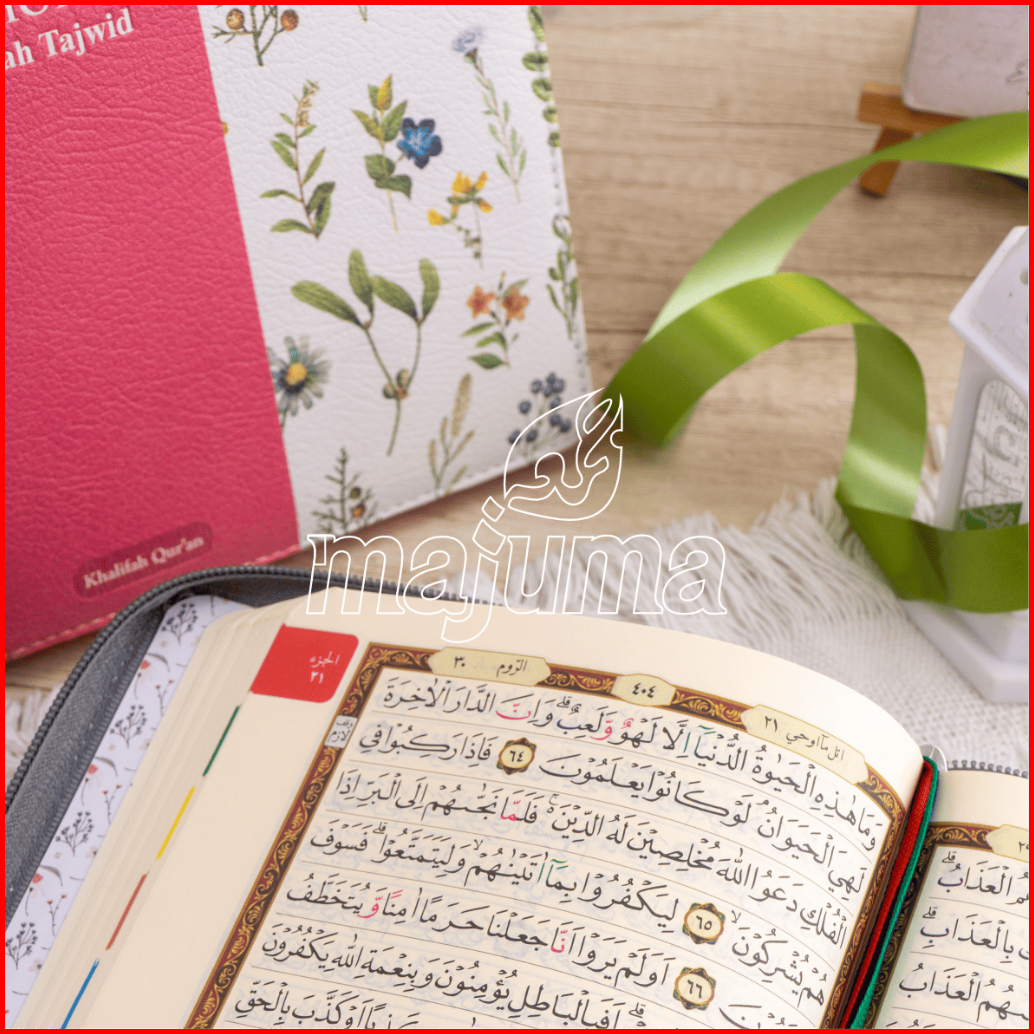 ah Tajwid
Khalifah Qur'an
majuma
الجزء
٢١
الرّوم ٣٠
٤٠٤
اتل ماۤاوحي ٢١
وَمَا هٰذِهِ الْحَيٰوةُ الدُّنْيَآ اِلَّا لَهْوٌ وَّلَعِبٌۗ وَاِنَّ الدَّارَ الْاٰخِرَةَ
لَهِيَ الْحَيَوَانُۘ لَوْ كَانُوْا يَعْلَمُوْنَ ٦٤ فَاِذَا رَكِبُوْا فِي
الْفُلْكِ دَعَوُا اللّٰهَ مُخْلِصِيْنَ لَهُ الدِّيْنَ ەۚ فَلَمَّا نَجّٰىهُمْ اِلَى الْبَرِّ اِذَا
هُمْ يُشْرِكُوْنَۙ ٦٥ لِيَكْفُرُوْا بِمَآ اٰتَيْنٰهُمْۙ وَلِيَتَمَتَّعُوْاۗ فَسَوْفَ
٦٦ اَوَلَمْ يَرَوْا اَنَّا جَعَلْنَا حَرَمًا اٰمِنًا وَّيُتَخَطَّفُ
اَفَبِالْبَاطِلِ يُؤْمِنُوْنَ وَبِنِعْمَةِ اللّٰهِ يَكْفُرُوْنَ
اَوْ كَذَّبَ بِالْحَقِّ
الْعَذَابُۗ
بِالْعَذَابِۗ
الْعَذَابُ